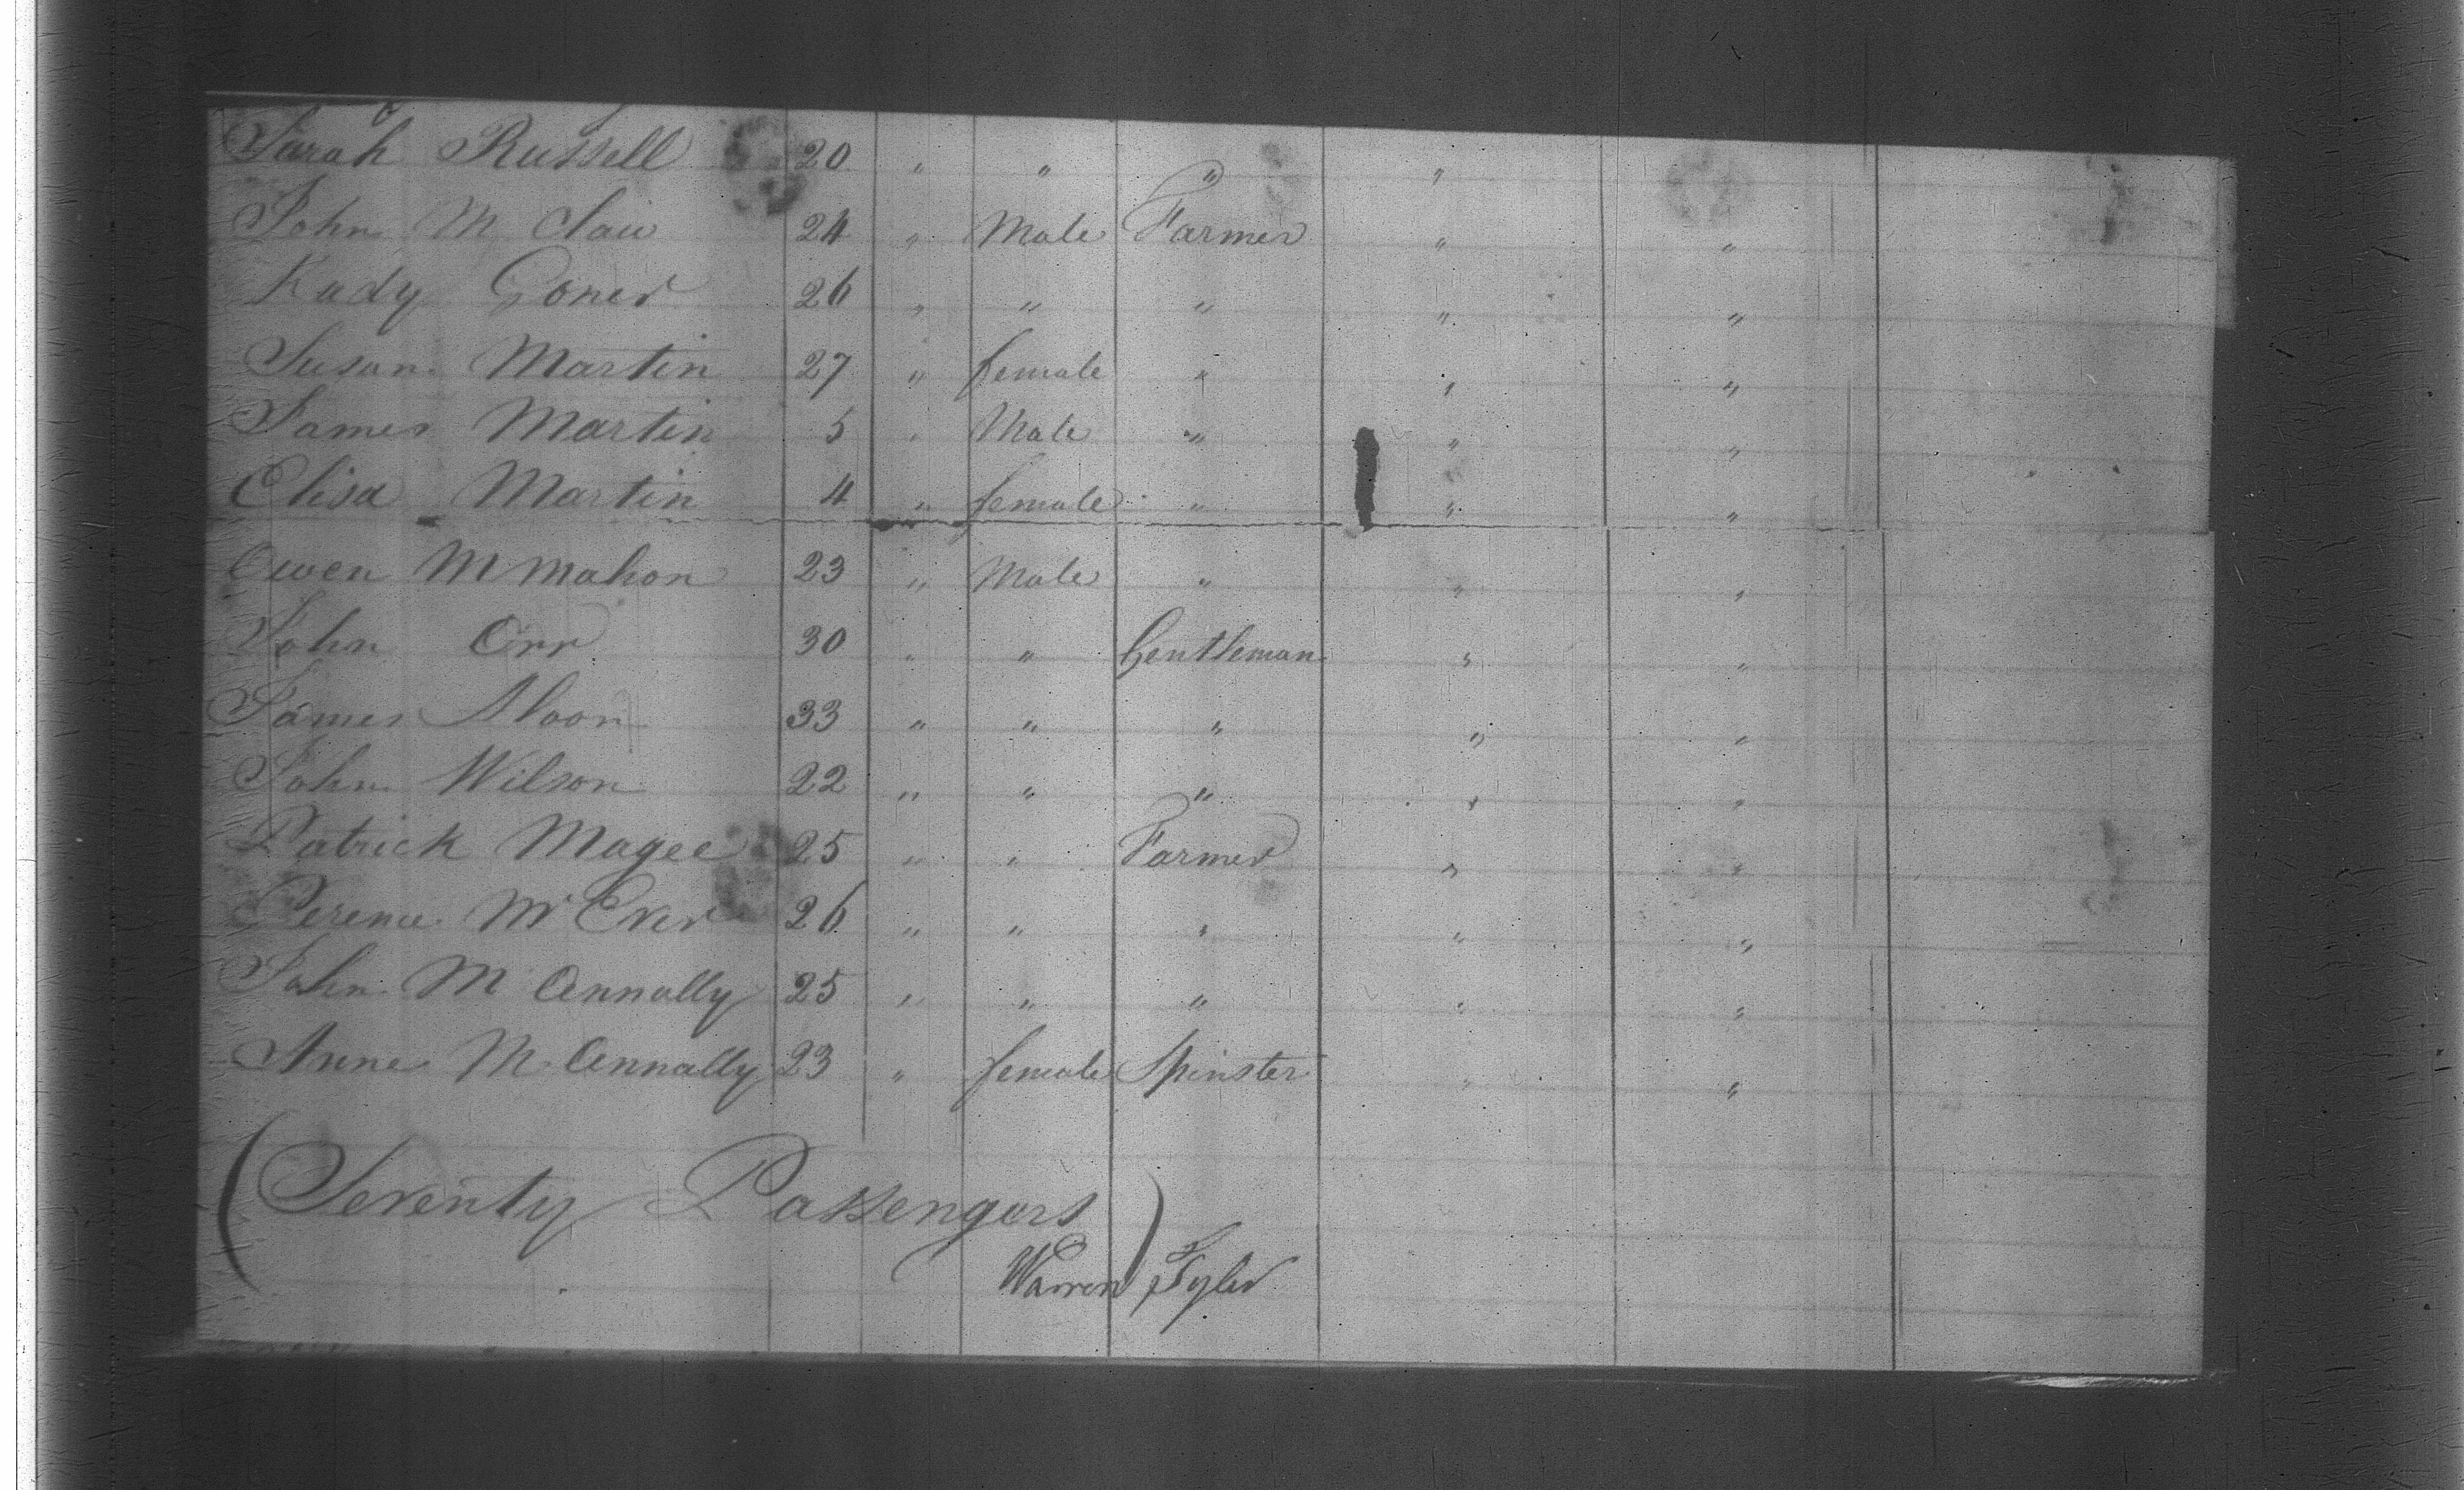 Sarah Russell 20 " " " "
John M Clau 24 " Male Farmer " "
Kady Goner 26 " " " " "
Susan Martin 27 " female " " "
James Martin 5 " Male " " "
Elisa Martin 4 " female " " "
Owen M mahon 23 " Male " " "
John Orr 30 " " Gentleman " "
James Sloon 33 " " " " "
John Wilson 22 " " " " "
Patrick Magee 25 " " Farmer " "
Perence Mc Ever 26 " " " " "
John M Connally 25 " " " " "
Anne M Connally 23 " female Spinster " "
(Seventy Passengers)
Warren Tyler